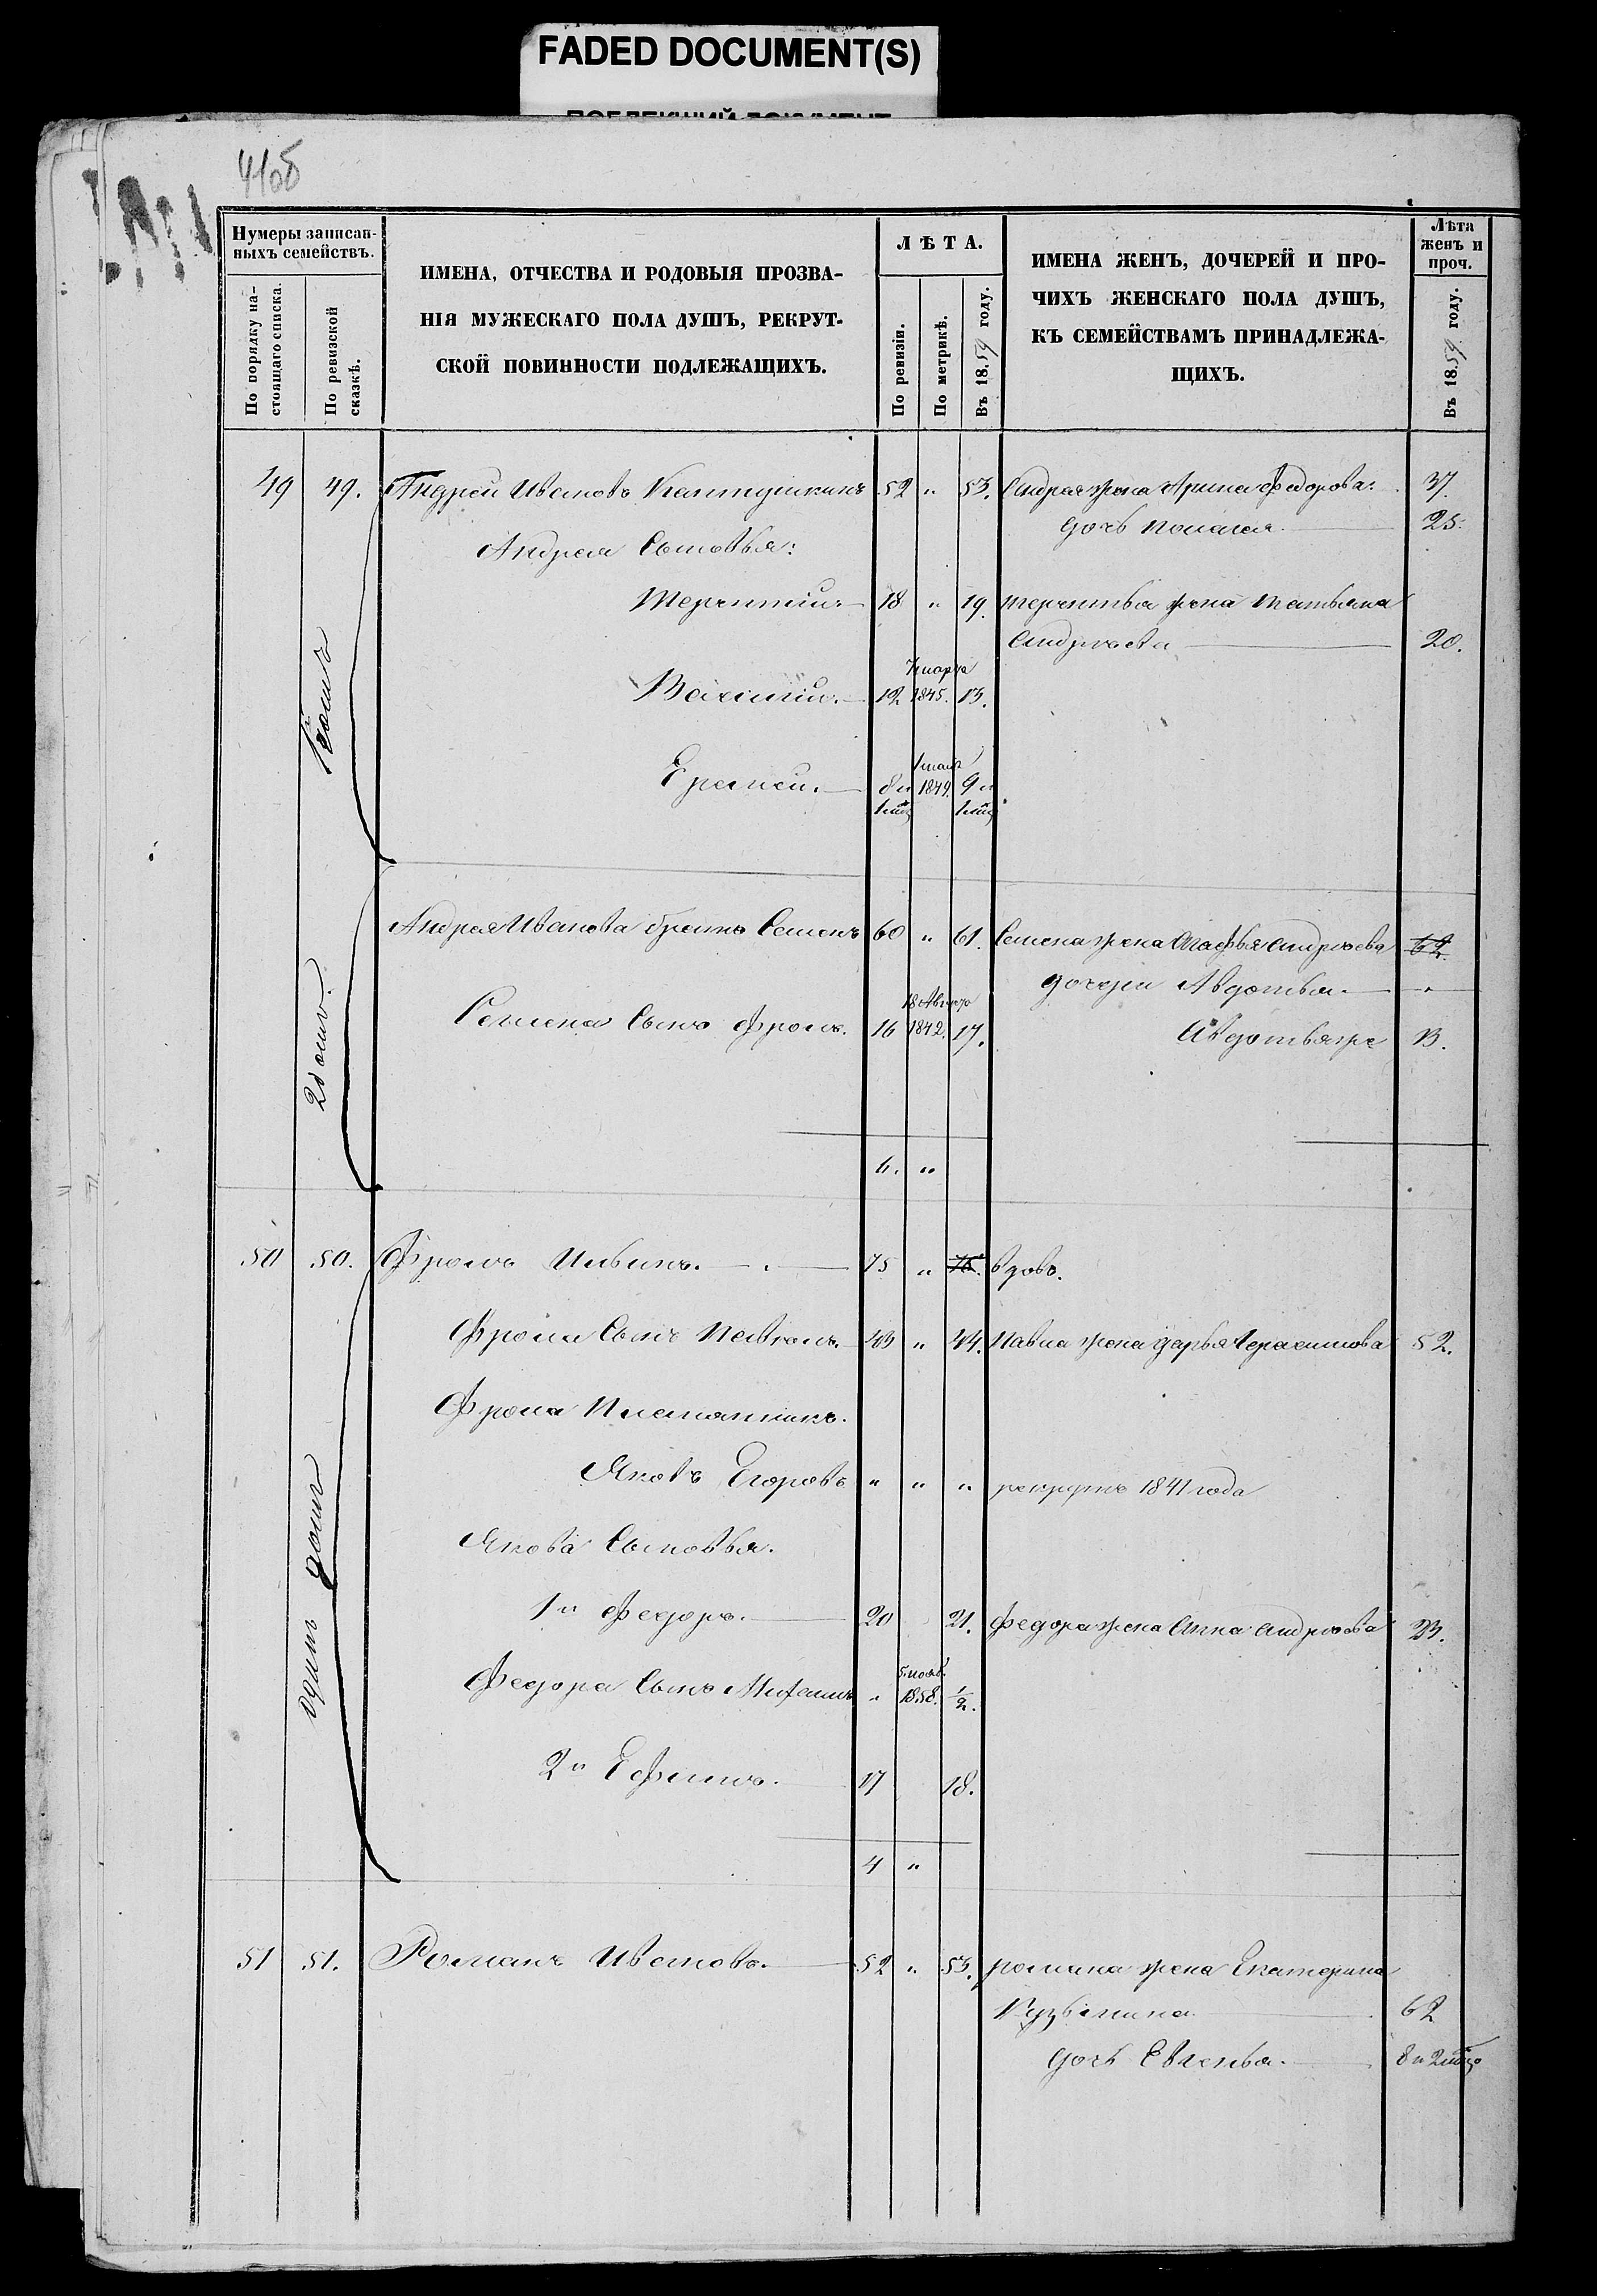 FADED DOCUMENT(S)
ПОБЛЕКШИЙ ДОКУМЕНТ
41об
Нумеры записан-
ныхъ семействъ.
По порядку на-
стоящаго списка.
По ревизской
сказкѣ.
ИМЕНА, ОТЧЕСТВА И РОДОВЫЯ ПРОЗВА-
НІЯ МУЖЕСКАГО ПОЛА ДУШЪ, РЕКРУТ-
СКОЙ ПОВИННОСТИ ПОДЛЕЖАЩИХЪ.
ЛѢТА.
По ревизіи.
По метрикѣ.
Въ 1859 году.
ИМЕНА ЖЕНЪ, ДОЧЕРЕЙ И ПРО-
ЧИХЪ ЖЕНСКАГО ПОЛА ДУШЪ,
КЪ СЕМЕЙСТВАМЪ ПРИНАДЛЕЖА-
ЩИХЪ.
Лѣта
женъ и
проч.
Въ 1859 году.
49 49. Андрей Ивановъ 52 " 53. Андрея жена Арина Федорова. 37.
дочь Пелагея. 25.
Андрея Сыновья:
Терентій. 18 " 19. Терентья жена Татьяна
Андреева 20.
7 марта
Василій. 12 1845. 13.
1 мая
Еремей. 8 и 1849. 9 и
1 мѣс 1 мѣс
Андрея Иванова братъ Семенъ 60 " 61. Семена жена Агафья Андреева 62.
дочери Авдотья. "
18 Августа
Семена Сынъ Фролъ. 16 1842. 17.
Авдотья же 13.
2й отиг.
6. "
50 50. Фролъ Ильинъ. 75 " 76. вдовъ.
Фрола Сынъ Павелъ. 43 " 44. Павла жена Дарья Герасимова 52.
Фрола Племянникъ.
Яковъ Егоровъ " " " рекрутъ 1841 года
Якова Сыновья.
1й Федоръ. 20 21. Федора жена Анна Андреева 23.
5 нояб.
Федора Сынъ Михаилъ " 1858. 1/2.
2й Ефимъ. 17 18.
одинъ
4 "
51 51. Романъ Ивановъ. 52 " 53. Романа жена Екатерина
Кузьмина 62
дочь Евгенья. 8 и 2 мѣс